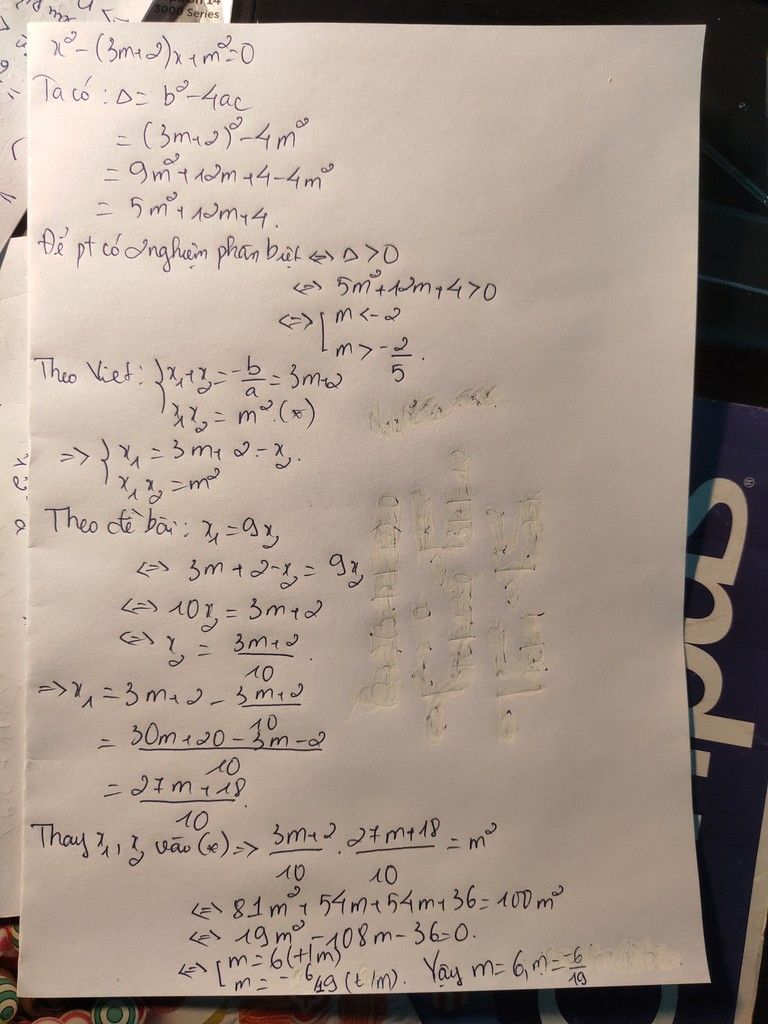 3000 Series
x² - (3m+2)x + m² = 0
Ta có: Δ = b² - 4ac
= (3m+2)² - 4m²
= 9m² + 12m + 4 - 4m²
= 5m² + 12m + 4.
Để pt có 2 nghiệm phân biệt <=> Δ > 0
<=> 5m² + 12m + 4 > 0
<=> [ m < -2
m > -2/5.
Theo Viet: { x₁ + x₂ = -b/a = 3m+2
x₁x₂ = m². (*)
=> { x₁ = 3m + 2 - x₂.
x₁x₂ = m²
Theo đề bài: x₁ = 9x₂
<=> 3m + 2 - x₂ = 9x₂
<=> 10x₂ = 3m + 2
<=> x₂ = (3m+2)/10.
=> x₁ = 3m + 2 - (3m+2)/10
= (30m + 20 - 3m - 2)/10
= (27m + 18)/10.
Thay x₁, x₂ vào (*) => (3m+2)/10 . (27m+18)/10 = m²
<=> 81m² + 54m + 54m + 36 = 100m²
<=> 19m² - 108m - 36 = 0.
<=> [ m = 6 (t/m)
m = -6/19 (t/m). Vậy m = 6, m = -6/19